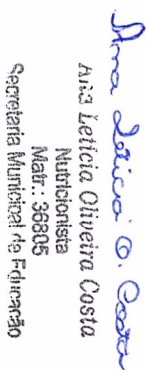 Ana Leticia O. Costa
Ana Letícia Oliveira Costa
Nutricionista
Matr.: 36805
Secretaria Municipal de Educação